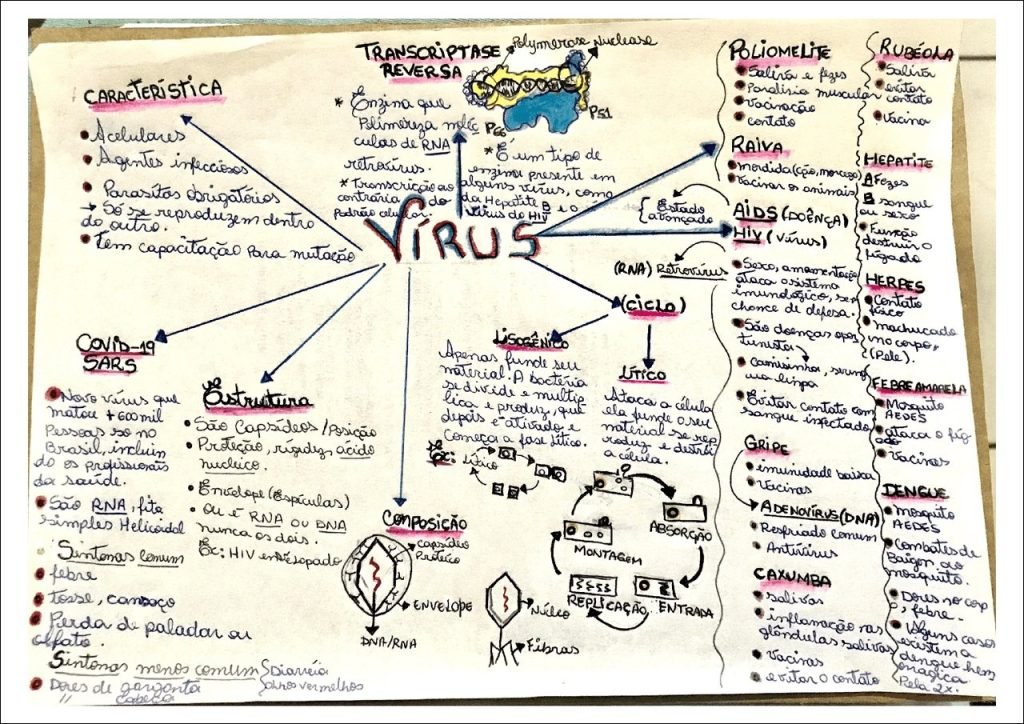 VÍRUS
CARACTERÍSTICA
• Acelulares
• Agentes infecciosos
• Parasitas obrigatórios
→ Só se reproduzem dentro
do outro.
• tem capacitação para mutação
TRANSCRIPTASE
REVERSA
Polymerase Nuclease
P66
P51
* Enzima que
Polimereza molé
culas de RNA
retrovírus.
* Transcrição ao
contrario do
padrão celular.
* É um tipo de
enzima presente em
alguns vírus, como
da Hepatite B e o
vírus do HIV
COVID-19
SARS
• Novo vírus que
matou + 600 mil
Pessoas so no
Brasil, incluin
do os profissionais
da saúde.
• São RNA, fita
simples Helicoidal
Sintomas comum
• febre
• tosse, cansaço
• Perda de paladar ou
olfato.
Sintomas menos comum { Diarréia
olhos vermelhos
• Dores de garganta
" cabeça
Estrutura
• São Capsídeos / Posição
• Proteção, rigidez, ácido
nucleico.
• Envelope (Espículas)
• Ou é RNA ou DNA
nunca os dois.
Ex: HIV envelopado
COMPOSIÇÃO
capsídio
Proteico
ENVELOPE
DNA/RNA
Núleo
Fibras
(CICLO)
LISOGÊNICO
Apenas funde seu
material. A bactéria
se divide e multip
lica e produz, que
depois é ativado e
começa a fase lítico.
Ex: Lítico
LÍTICO
Ataca a célula
ela funde o seu
material se rep
roduz e destrói
a célula.
ABSORÇÃO
ENTRADA
REPLICAÇÃO
MONTAGEM
POLIOMELITE
• Saliva e fezes
• Paralisia muscular
• Vacinação
• contato
RAIVA
• mordida (cão, morcego)
• Vacinar os animais
{ Estado
avançado
AIDS (DOENÇA)
HIV (vírus)
(RNA) Retrovírus
• Sexo, amamentação
ataca o sistema
imunológico, sem
chance de defesa.
• São doenças opor
tunista
• Camisinha, sering
ua limpa
• Evitar contato com
sangue infectado
GRIPE
• imunidade baixa
• Vacinas
ADENOVÍRUS (DNA)
• Resfriado comum
• Antivírus
CAXUMBA
• salivas
• inflamação nas
glândulas salivas
• Vacinas
• evitar o contato
RUBÉOLA
• Saliva
• evitar
contato
• Vacina
HEPATITE
A Fezes
B sangue
ou sexo
• Função
destruir o
fígado
HERPES
• Contato
físico
• machucado
no corpo,
(Pele).
FEBRE AMARELA
• Mosquito
AEDES
• ataca o fíg
ado
• Vacinas
DENGUE
• mosquito
AEDES
• Combates de
Baigon ao
mosquito.
• Dores no cor
po, febre.
• Alguns casos
existem a
dengue hem
orragica
Pela 2x.